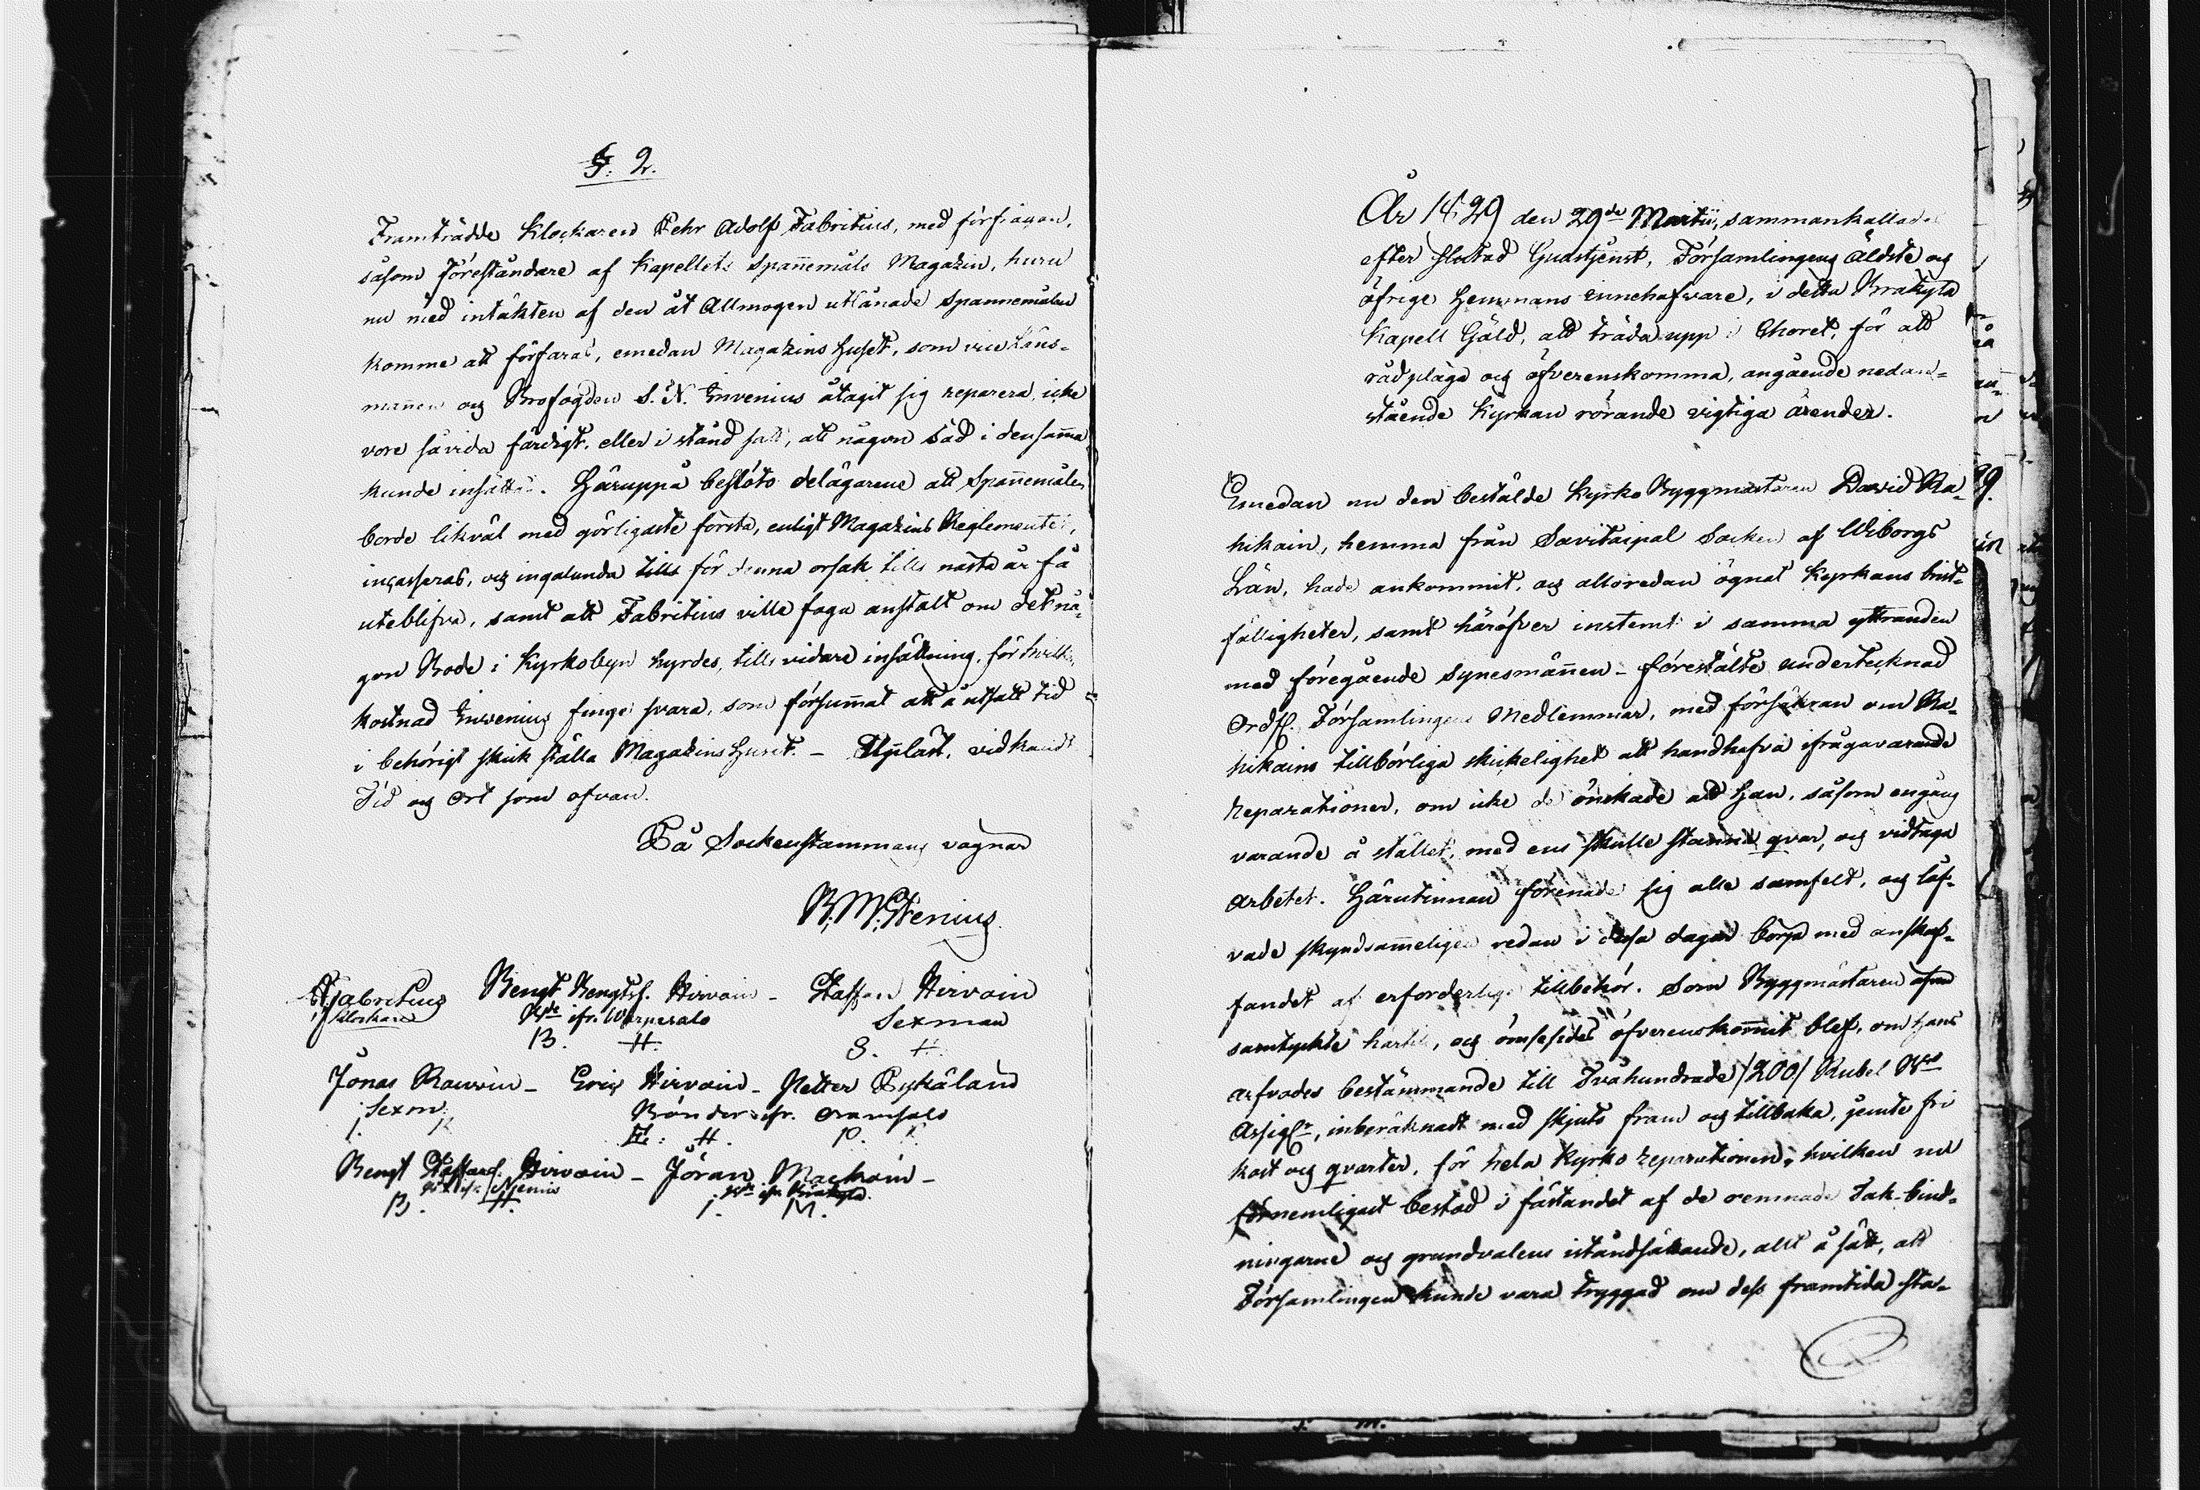 §. 2.
Framträdde Klockaren Pehr Adolf Fabritius, med förfrågan,
såsom föreståndare af Kapellets Spannemåls Magazin, huru
nu med intäkten af den åt Allmogen utlånade Spannemålen
komme att förfaras, emedan Magazins Huset, som vice Läns-
mannen og Brofogden S. N. Invenius åtagit sig reparera, icke
vore såvida färdigt, eller i stånd satt, att någon Säd i densamma
kunde insättas. Häruppå beslöto delägarene att Spannemålen
borde likväl med görligaste första, enligt Magazins Reglementet,
incasseras, og ingalunda tills för denna orsak tills nästa år få
uteblifva, samt att Fabritius ville foga anstalt om det nå-
gon Bode i Kyrkobyn hyrdes, tills vidare insättning, för hvilken
kostnad Invenius finge svara, som försummat att å utsatt tid
i behörigt skick ställa Magazins Huset. - Upläst, vidkändt
Tid og Ort som ofvan.
På Sockenstämmans vägnar
B. M. Stenius.
P. A. Fabritius Bengt Bengtss. Hirvoin - Staffan Hirvoin
Klockare Bde ifr. Sexman
B. H. S. H.
Jonas - Eric Hirvoin - Petter
Sexm: Bönder ifr.
J. E: H. P. P.
Bengt Staffanss. Hirvoin - Jöran Machoin -
B. H. J. M.
År 1829 den 29de Martii, sammankallades
efter slutad Gudstjenst, Församlingens äldste og
öfrige Hemmans innehafvare, i detta Bräkylä
Kapell Gäld, att träda upp i Choret, för att
rådpläga og öfverenskomma, angående nedan-
stående Kyrkan rörande vigtiga ärender.
Emedan nu den bestälde Kyrko Byggmästaren David Ra-
hikain, hemma från Savitaipal Socken af Wiborgs
Län, hade ankommit, og alloredan ögnat Kyrkans brist-
fälligheter, samt häröfver instemt i samma yttranden
med föregående Synesmännen - förestälte undertecknad
Ordf. Församlingens Medlemmar, med försäkran om Ra-
hikains tillbörliga skickelighet att handhafva ifrågavarande
Reparationer, om icke de önskade att Han, såsom engång
varande å stället, med ens skulle stanna qvar, og vidtaga
arbetet. Härutinnan förenade sig alle samfelt, og låf-
vade skyndsammeligen redan i dessa dagar börja med anskaf-
fandet af erforderlige tillbehör. Som Byggmästaren äfven
samtyckte härtill, og ömsesides öfverenskommit blef, om hans
arfvodes bestämmande till Tvåhundrade /200/ Rubel Bco
Assign:, inberäknadt med skjuts fram og tillbaka, jemte fri
kost og qvarter, för hela Kyrko reparationen, hvilken nu
förnemligast bestod i fästandet af de remnade Tak-bind-
ningarne og grundvalens iståndsättande, allt å sätt, att
Församlingen kunde vara tryggad om dess framtida sta-